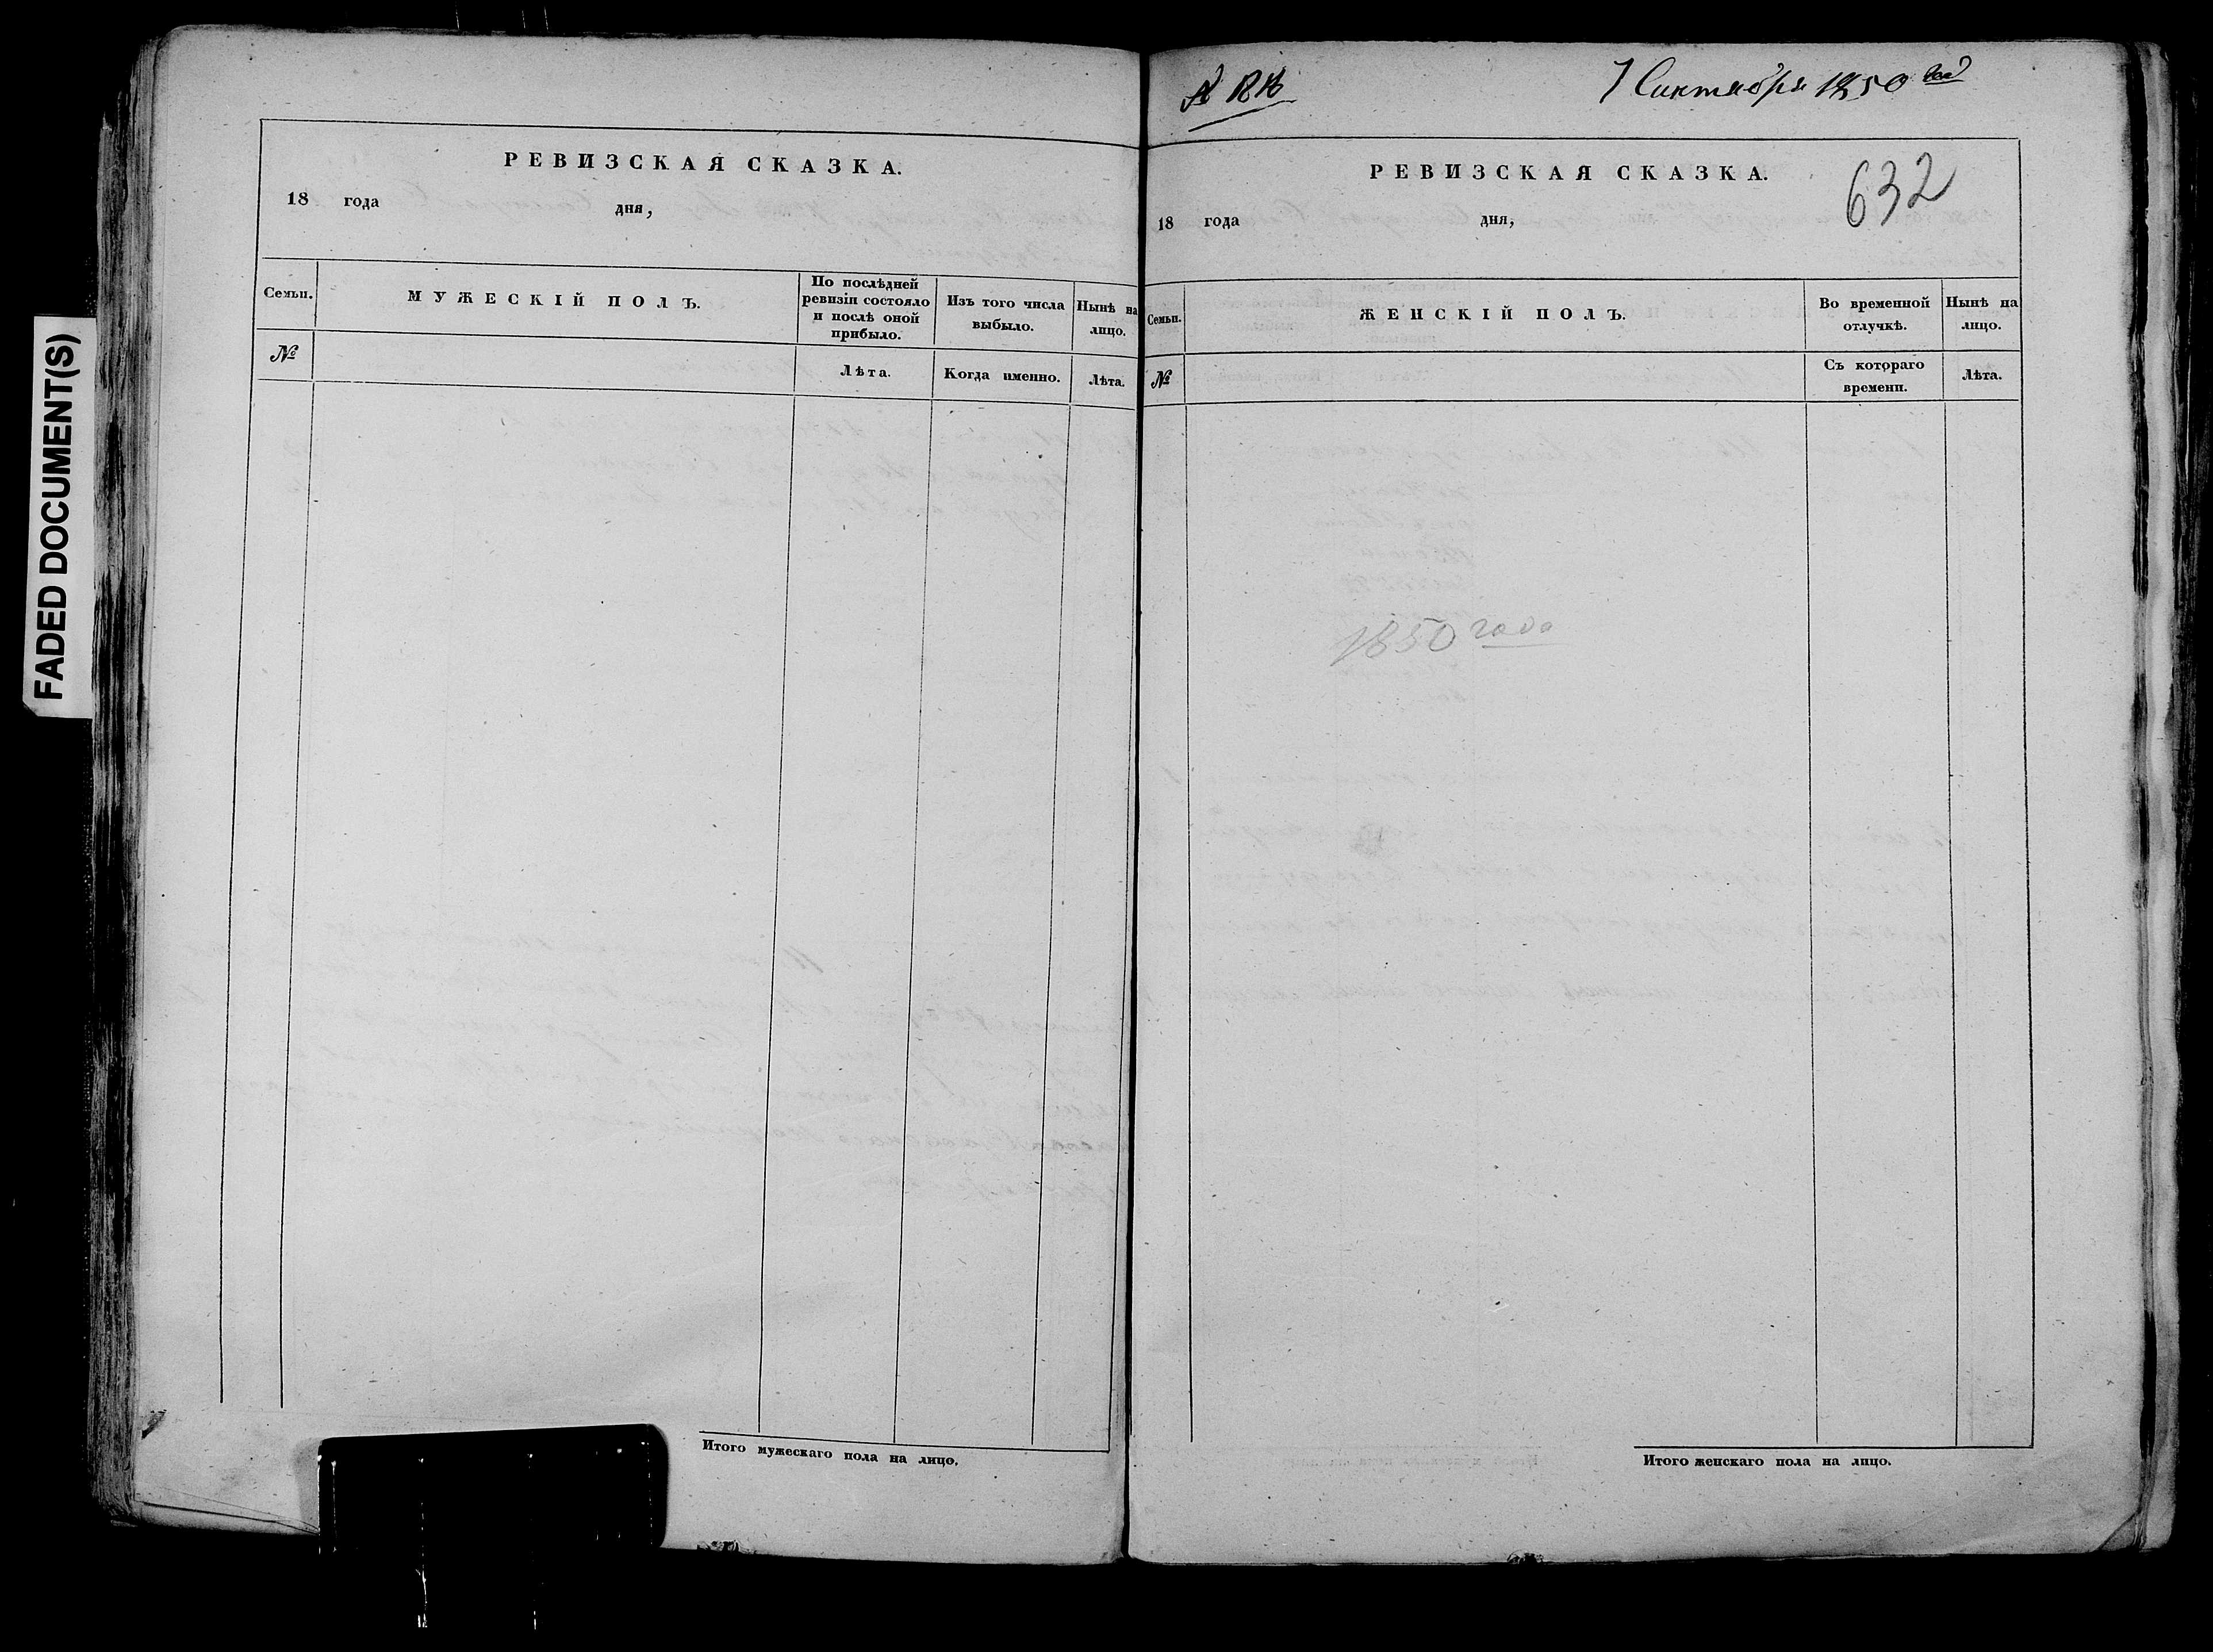 FADED DOCUMENT(S)
РЕВИЗСКАЯ СКАЗКА.
18 года дня,
Семьи.
МУЖЕСКІЙ ПОЛЪ.
По послѣдней
ревизіи состояло
и послѣ оной
прибыло.
Изъ того числа
выбыло.
Нынѣ на
лицо.
№
Лѣта.
Когда именно.
Лѣта.
Итого мужескаго пола на лицо.
7 Сентября 1850 год
РЕВИЗСКАЯ СКАЗКА.
632
18 года дня,
Семьи.
ЖЕНСКІЙ ПОЛЪ.
Во временной
отлучкѣ.
Нынѣ на
лицо.
№
Съ котораго
времени.
Лѣта.
1850 года
Итого женскаго пола на лицо.